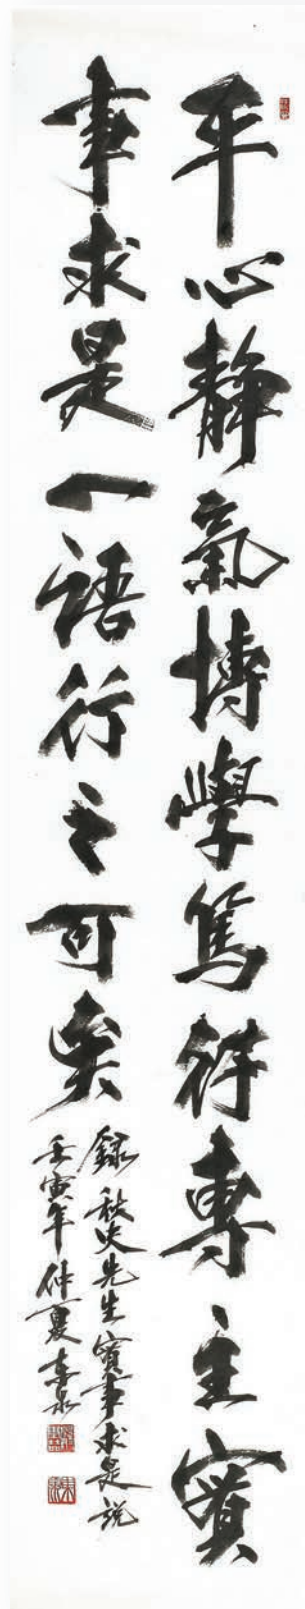 平心靜氣博學篤行專主實
事求是一語行之可矣
錄秋史先生實事求是說
壬寅年仲夏東泉